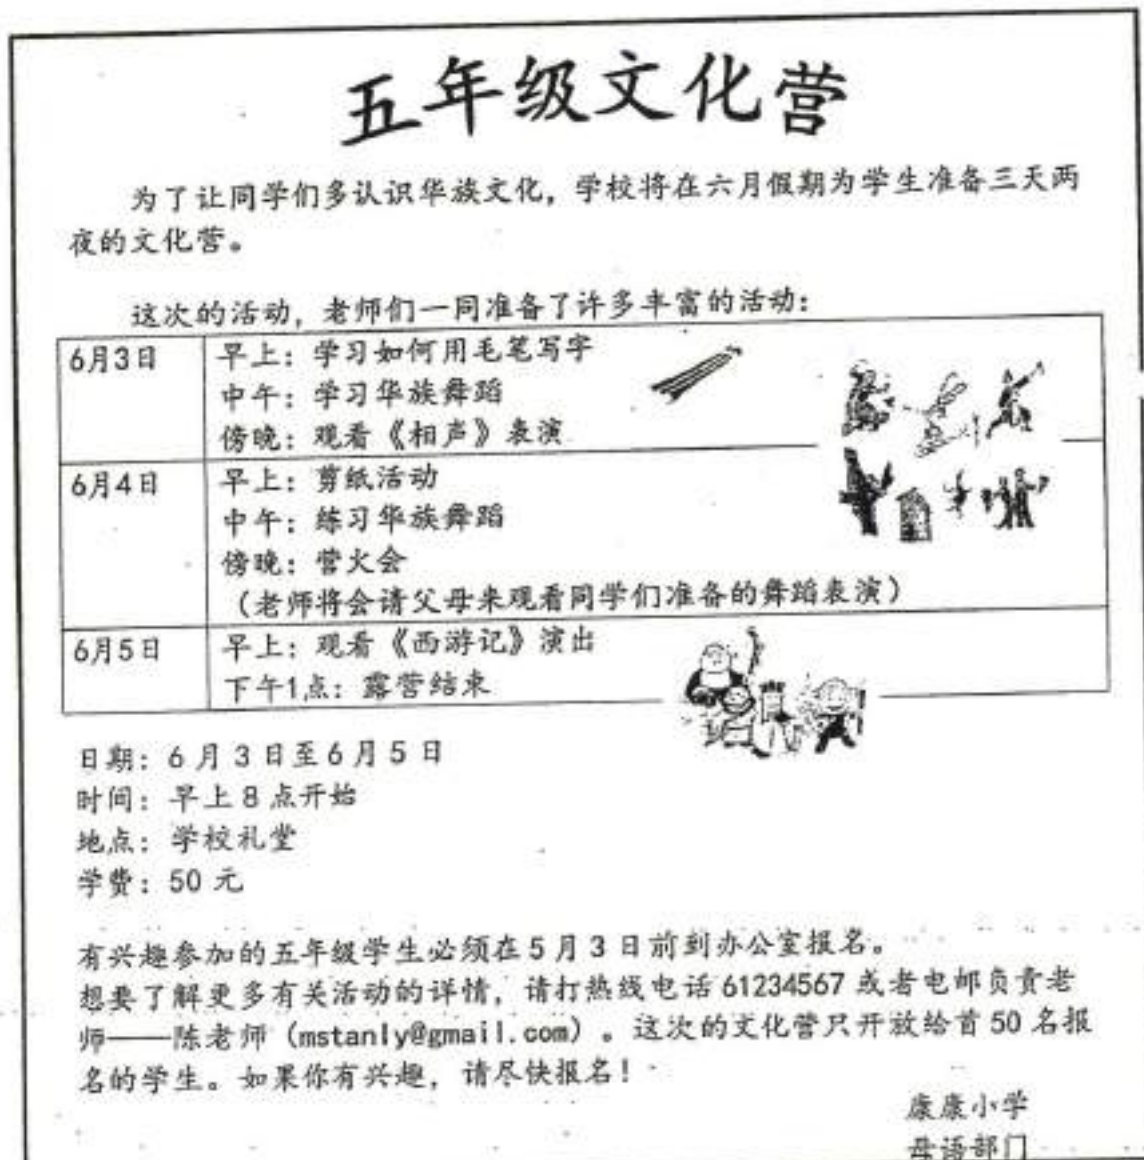 五年级文化营
为了让同学们多认识华族文化，学校将在六月假期为学生准备三天两
夜的文化营。
这次的活动，老师们一同准备了许多丰富的活动：
6月3日
早上：学习如何用毛笔写字
中午：学习华族舞蹈
傍晚：观看《相声》表演
6月4日
早上：剪纸活动
中午：练习华族舞蹈
傍晚：营火会
（老师将会请父母来观看同学们准备的舞蹈表演）
6月5日
早上：观看《西游记》演出
下午1点：露营结束
日期：6月3日至6月5日
时间：早上8点开始
地点：学校礼堂
学费：50元
有兴趣参加的五年级学生必须在5月3日前到办公室报名。
想要了解更多有关活动的详情，请打热线电话 61234567 或者电邮负责老
师——陈老师（mstanly@gmail.com）。这次的文化营只开放给首50名报
名的学生。如果你有兴趣，请尽快报名！
康康小学
母语部门